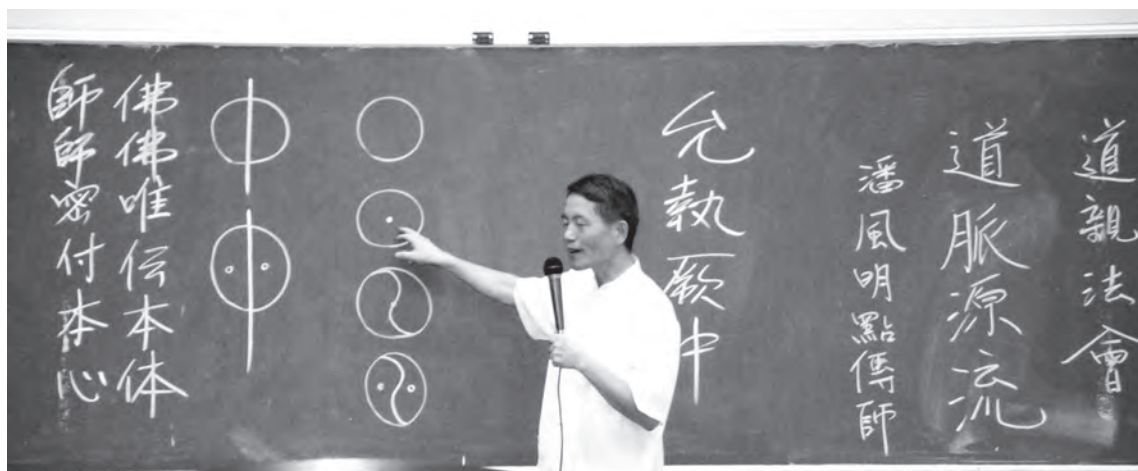 道親法會
道脈源流
潘風明點傳師
允執厥中
佛佛唯伝本体
師師密付本心